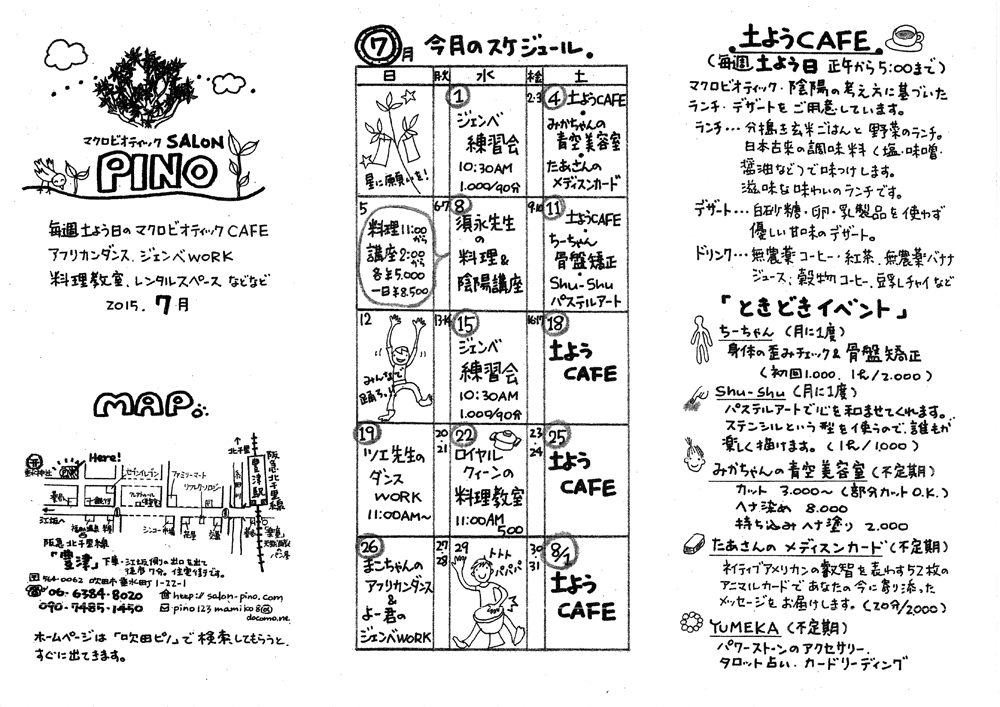 マクロビオティック SALON
PINO
毎週土よう日のマクロビオティックCAFE
アフリカンダンス、ジェンベWORK
料理教室、レンタルスペース などなど
2015. 7月
MAP。
Here!
セブンイレブン
ファミリーマート
北千里
豊津駅
阪急北千里線
江坂へ
阪急北千里線
「豊津」下車・江坂側の出口を出て
徒歩7分。住宅街です。
〒564-0062 吹田市垂水町1-22-1
☎06-6384-8020
http://salon-pino.com
090-7485-1450
pino123mamiko8@
docomo.ne.
ホームページは「吹田ピノ」で検索してもらうと、
すぐに出てきます。
7月 今月のスケジュール。
日 月火 水 木金 土
星に願いを!
1
ジェンベ
練習会
10:30AM
1.000/90分
2・3
4 土ようCAFE
みかちゃんの
青空美容室
たあさんの
メディスンカード
5
料理11:00
から
講座2:00
から
各¥5.000
一日¥8.500
6・7
8 須永先生
の
料理&
陰陽講座
9・10
11 土ようCAFE
ちーちゃん
骨盤矯正
Shu-Shu
パステルアート
12
みんなで
踊ろっ!!
13・14
15
ジェンベ
練習会
10:30AM
1.000/90分
16・17
18
土よう
CAFE
19
ツエ先生の
ダンス
WORK
11:00AM~
20
21
22
ロイヤル
クィーンの
料理教室
11:00AM
500
23
・24
25
土よう
CAFE
26
まこちゃんの
アフリカンダンス
&
よー君の
ジェンベWORK
27
28
29
トトト
パパパ
30
・31
8/1
土よう
CAFE
土ようCAFE
(毎週土よう日 正午から5:00まで)
マクロビオティック・陰陽の考え方に基づいた
ランチ・デザートをご用意しています。
ランチ・・・分搗き玄米ごはんと野菜のランチ。
日本古来の調味料(塩・味噌・
醤油など)で味つけします。
滋味な味わいのランチです。
デザート・・・白砂糖・卵・乳製品を使わず
優しい甘味のデザート。
ドリンク・・・無農薬コーヒー・紅茶、無農薬バナナ
ジュース、穀物コーヒー、豆乳チャイなど
「ときどきイベント」
ちーちゃん(月に1度)
身体の歪みチェック&骨盤矯正
(初回1.000、1h/2.000)
Shu-Shu(月に1度)
パステルアートで心を和ませてくれます。
ステンシルという型を使うので、誰もが
楽しく描けます。(1h/1000)
みかちゃんの青空美容室(不定期)
カット 3.000~(部分カットO.K.)
ヘナ染め 8.000
持ち込みヘナ塗り 2.000
たあさんのメディスンカード(不定期)
ネイティブアメリカンの叡智を表わす52枚の
アニマルカードであなたの今に寄り添った
メッセージをお届けします。(20分/2000)
YUMEKA(不定期)
パワーストーンのアクセサリー、
タロット占い・カードリーディング